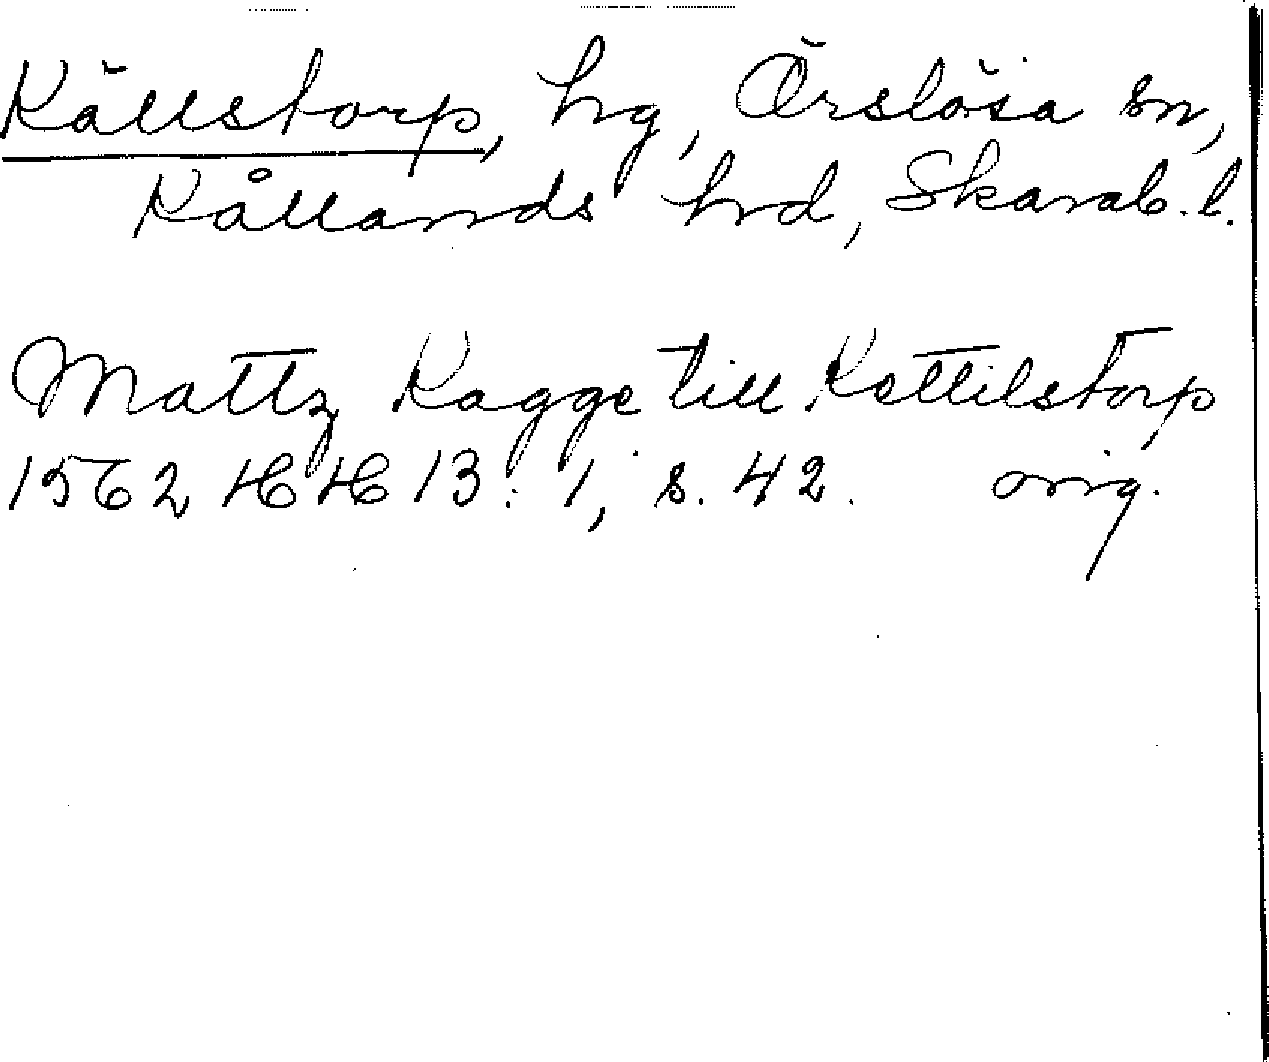 Källstorp, hg, Örslösa sn,
Kållands hrd, Skarab. l.
Mattz Kagge till Kettilstorp
1562 HH 13: 1, s. 42. orig.